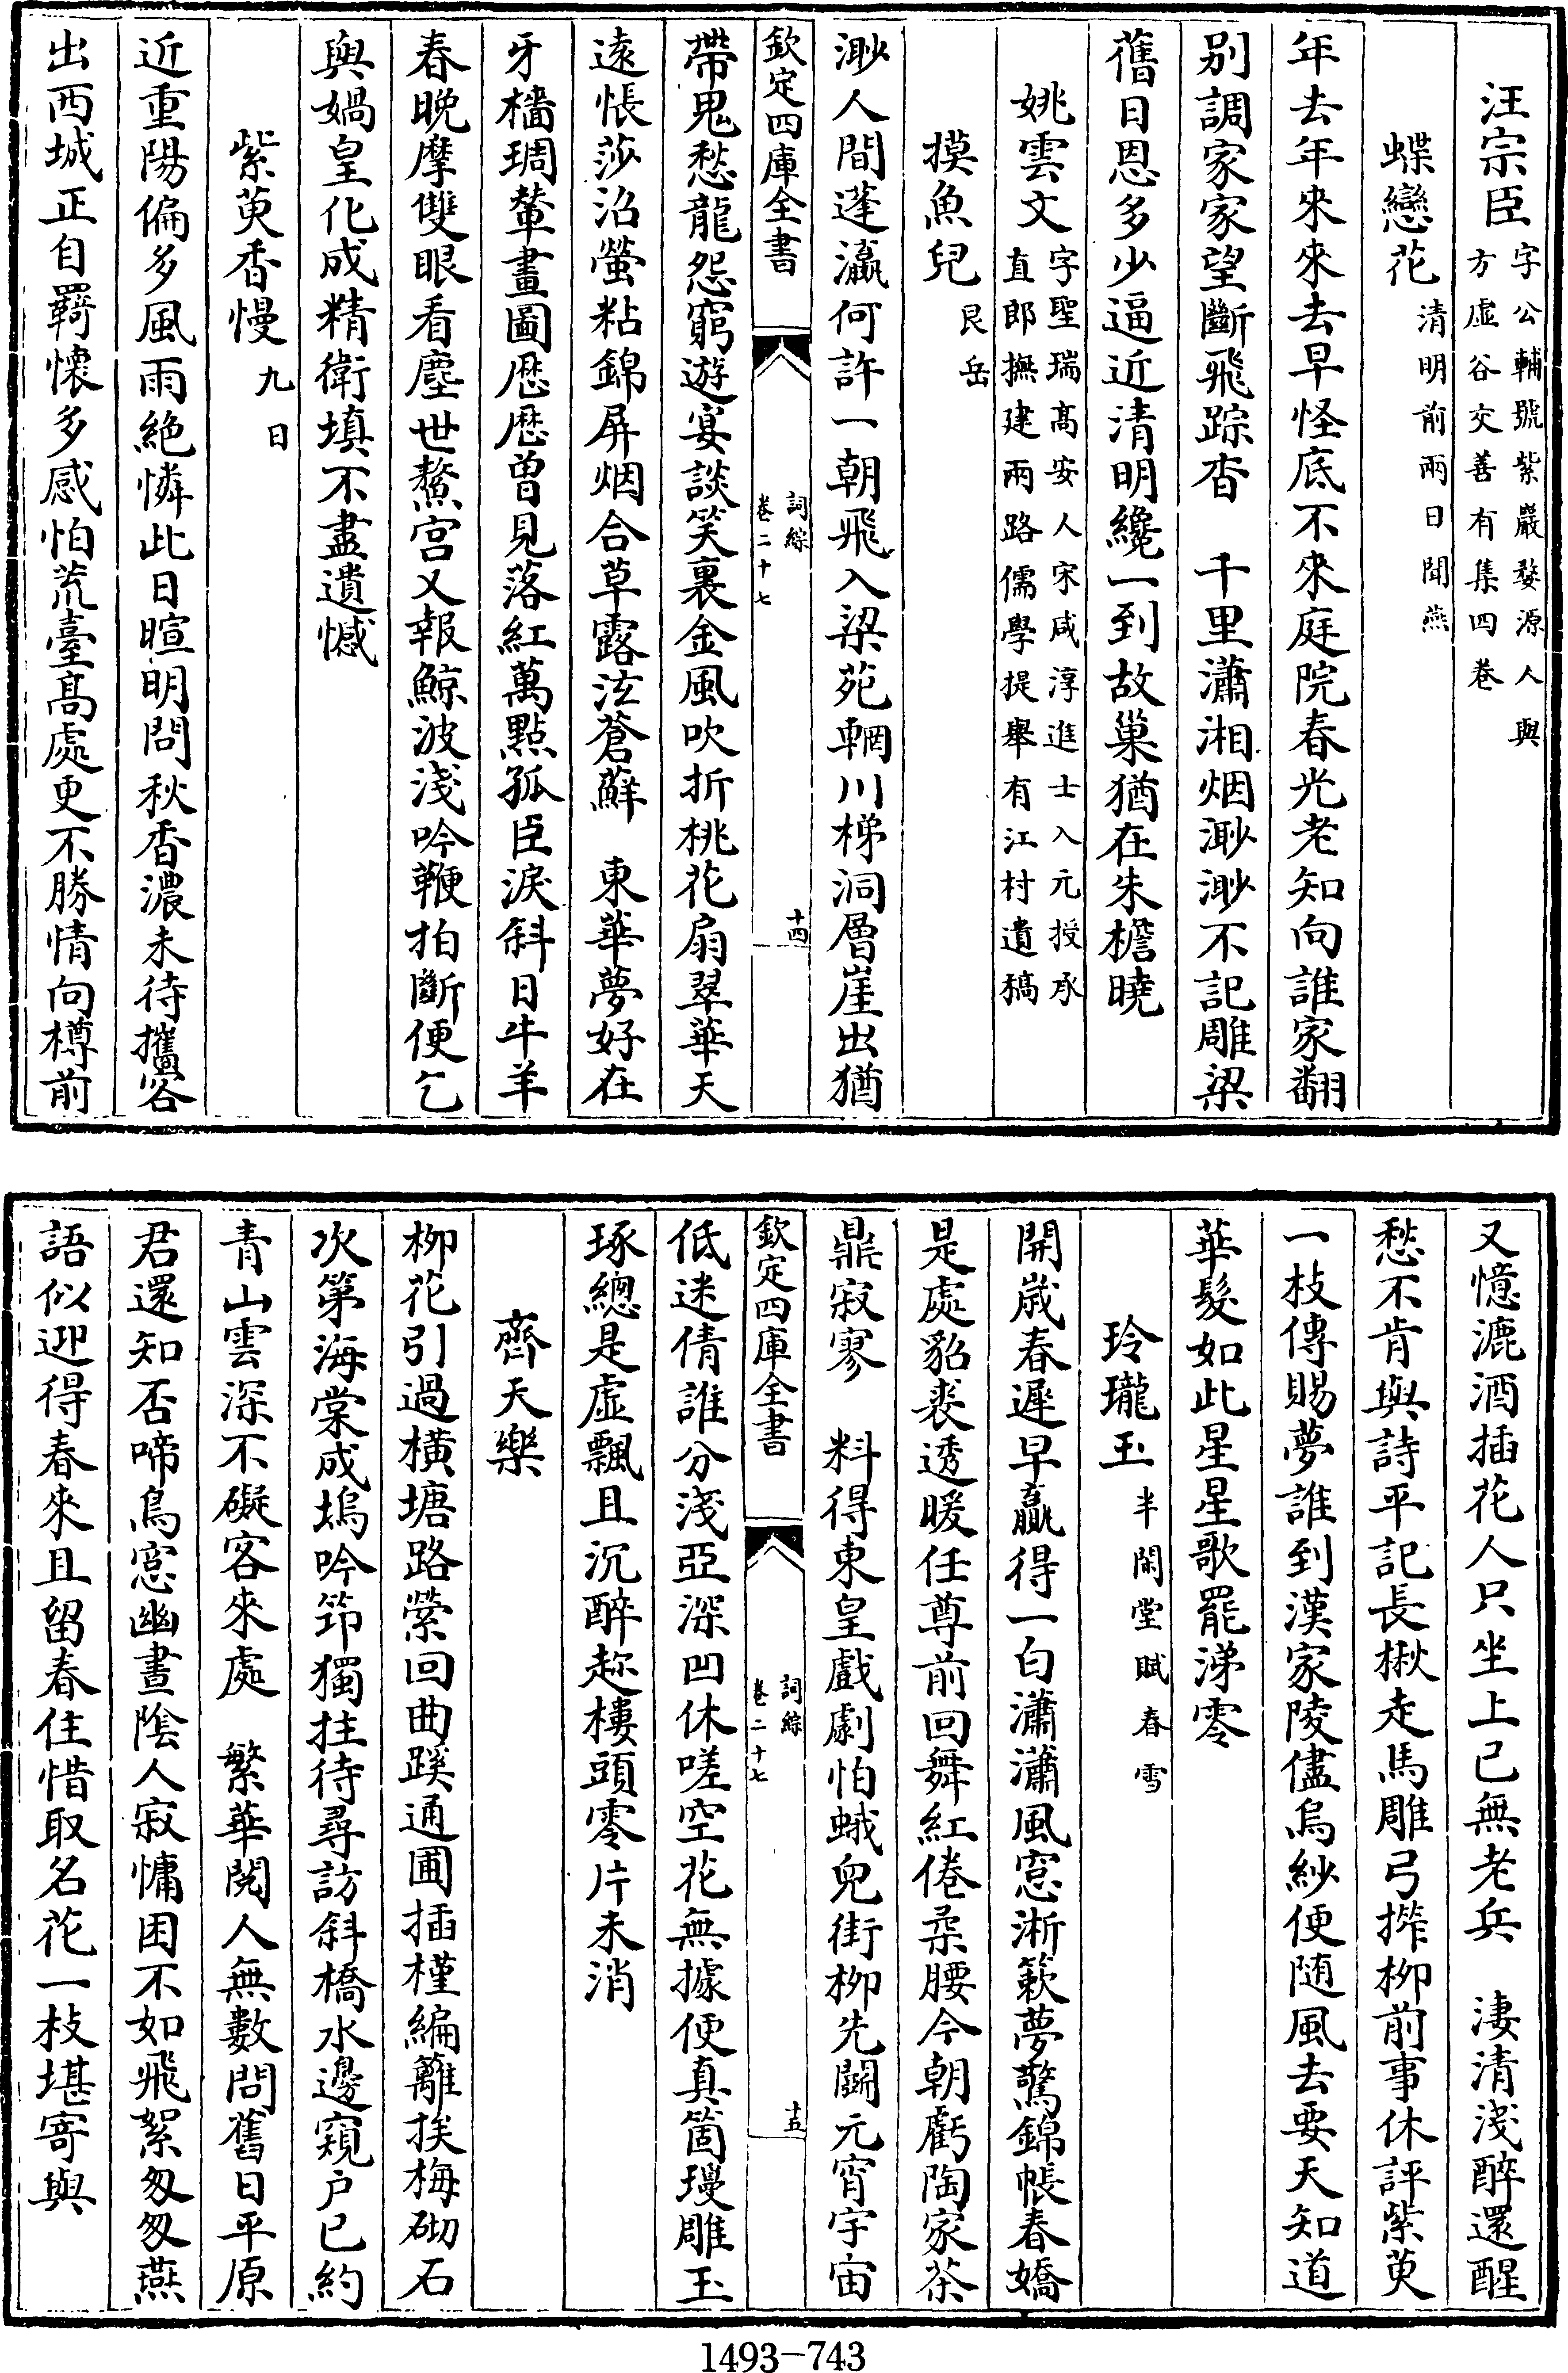 汪宗臣字公輔號紫巖婺源人與方虚谷交善有集四卷
蝶戀花清明前兩日聞燕
年去年來來去早怪底不來庭院春光老知向誰家翻
别調家家望斷飛踪杳　千里瀟湘烟渺渺不記雕梁
舊日恩多少逼近清明纔一到故巢猶在朱檐曉
姚雲文字聖瑞髙安人宋咸淳進士入元授承直郎撫建兩路儒學提舉有江村遺稿
摸魚兒艮岳
渺人間蓬瀛何許一朝飛入梁苑輞川梯洞層崖出猶
欽定四庫全書
詞綜
卷二十七
十四
帶鬼愁龍怨窮遊宴談笑裏金風吹折桃花扇翠華天
逺悵莎沼螢粘錦屏烟合草露泫蒼蘚　東華夢好在
牙檣琱輦畫圖厯厯曽見落紅萬點孤臣淚斜日牛羊
春晚摩雙眼看塵世鰲宫又報鯨波淺吟鞭拍斷便乞
與媧皇化成精衛填不盡遺憾
紫萸香慢九日
近重陽偏多風雨絶憐此日暄明問秋香濃未待攜客
出西城正自羈懷多感怕荒臺髙處更不勝情向樽前
又憶漉酒插花人只坐上已無老兵　淒清淺醉還醒
愁不肯與詩平記長楸走馬雕弓搾柳前事休評紫萸
一枝傳賜夢誰到漢家陵儘烏紗便随風去要天知道
華髮如此星星歌罷涕零
玲瓏玉半閑堂賦春雪
開歲春遲早贏得一白瀟瀟風窓淅簌夢驚錦帳春嬌
是處貂裘透暖任尊前回舞紅倦柔腰今朝虧陶家茶
鼎寂寥　料得東皇戲劇怕蛾兒街柳先鬭元宵宇宙
欽定四庫全書
詞綜
卷二十七
十五
低迷倩誰分淺亞深凹休嗟空花無據便真箇瓊雕玉
琢總是虚飄且沉醉趂樓頭零片未消
齊天樂
柳花引過橫塘路縈回曲蹊通圃插槿編籬挨梅砌石
次第海棠成塢吟笻獨拄待尋訪斜橋水邊窺户已約
青山雲深不礙客來處　繁華閲人無數問舊日平原
君還知否啼鳥窓幽晝陰人寂慵困不如飛絮匆匆燕
語似迎得春來且留春住惜取名花一枝堪寄與
1493-743